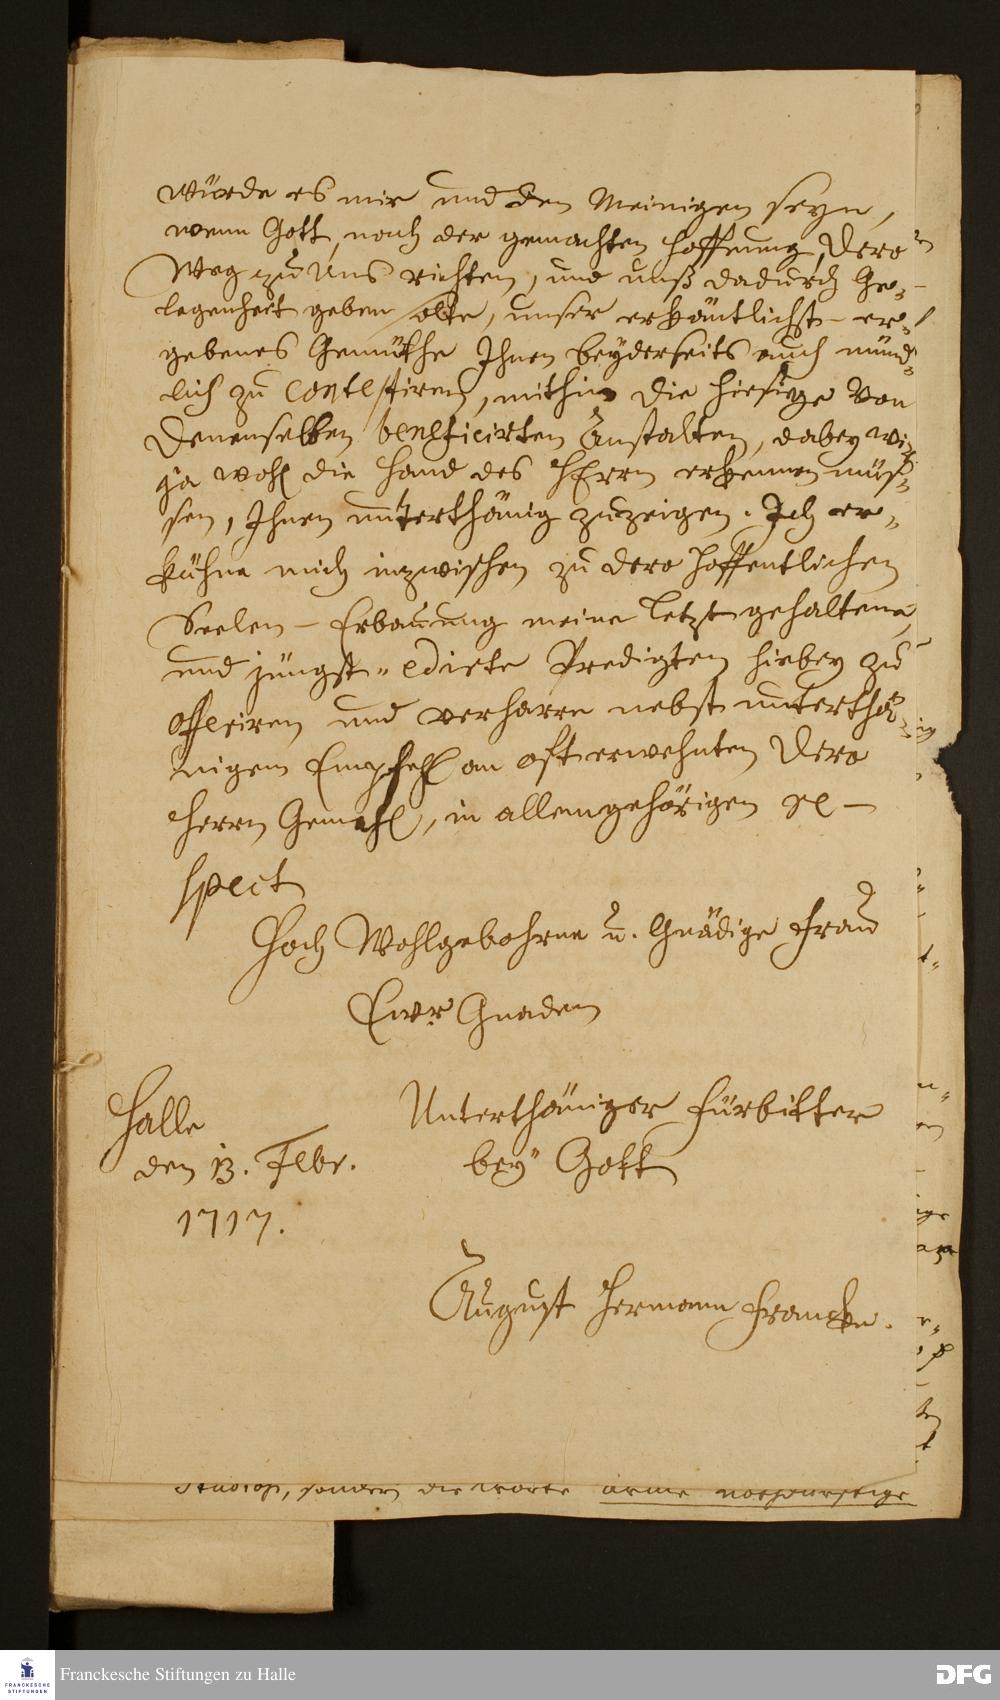 würde es mir und den Meinigen seyn,
wenn Gott, nach der gemachten Hoffnung, Dero
Weg zu uns richten, und uns dadurch Ge-
legenheit geben solte, unser erkäntlichst- er-
gebenes Gemüthe Ihnen beyderseits auch münd-
lich zu contestiren, mithin die hiesige von
Denenselben beneficirten Anstalten, dabey wir
ja wohl die Hand des HErrn erkennen müs-
sen, Ihnen unterthänig zuzeigen. Ich er-
kühne mich inzwischen zu dero hoffentlichen
Seelen-Erbauung meine letzt gehaltene
und jüngst-edirte Predigten hiebey zu
offeriren und verharre nebst unterthä-
nigem Empfehl an oft erwehnten Dero
Herrn Gemahl, in allem gehörigen re-
spect
Hoch Wohlgebohrne u. Gnädige Frau
Ewr Gnaden
Unterthäniger Fürbitter
bey Gott
Halle
den 13. Febr.
1717.
August Hermann Francke.
sondern die worte arme nothdürftige
Franckesche Stiftungen zu Halle
FRANCKESCHE
STIFTUNGEN
DFG